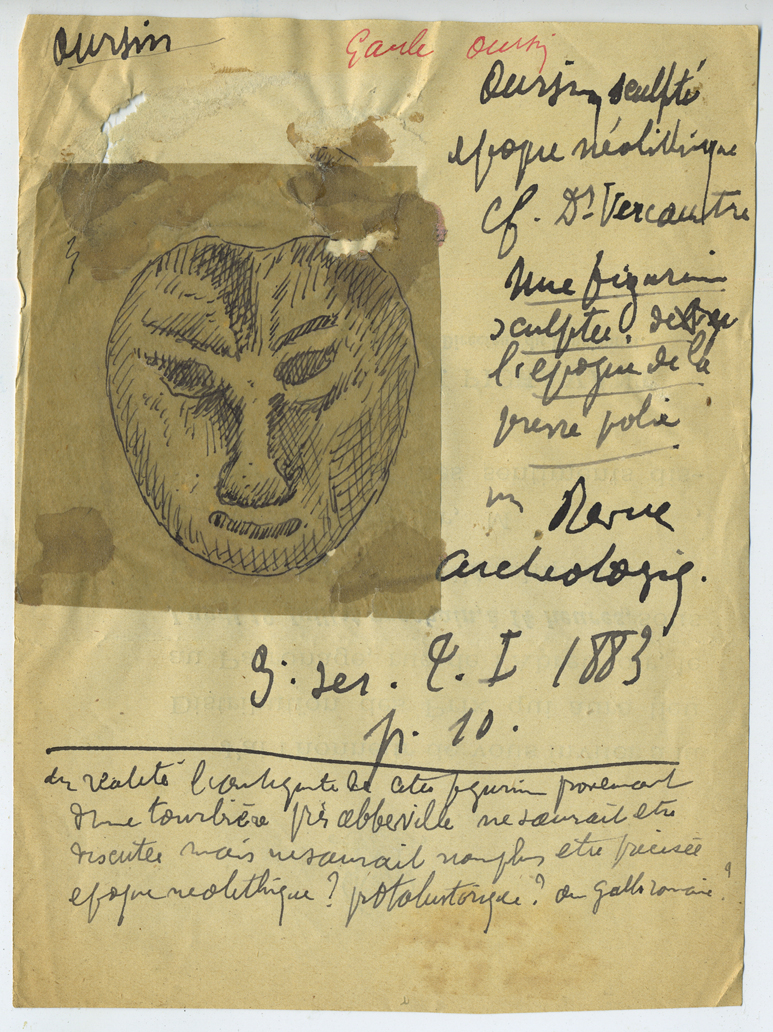 Oursin
Gaule Oursin
Oursin sculpté
epoque néolithique
Cf. Dr Vercoutre
Une figurine
sculptée, de
l'epoque de la
pierre polie
in Revue
Archeologiq.
3. ser. T. I 1883
p. 10.
en realité l'antiquité de cette figurine provenant
d'une tourbière près abbeville ne saurait etre
discutée mais ne saurait non plus etre précisée
epoque neolithique? protohistorique? ou Gallo romaine?